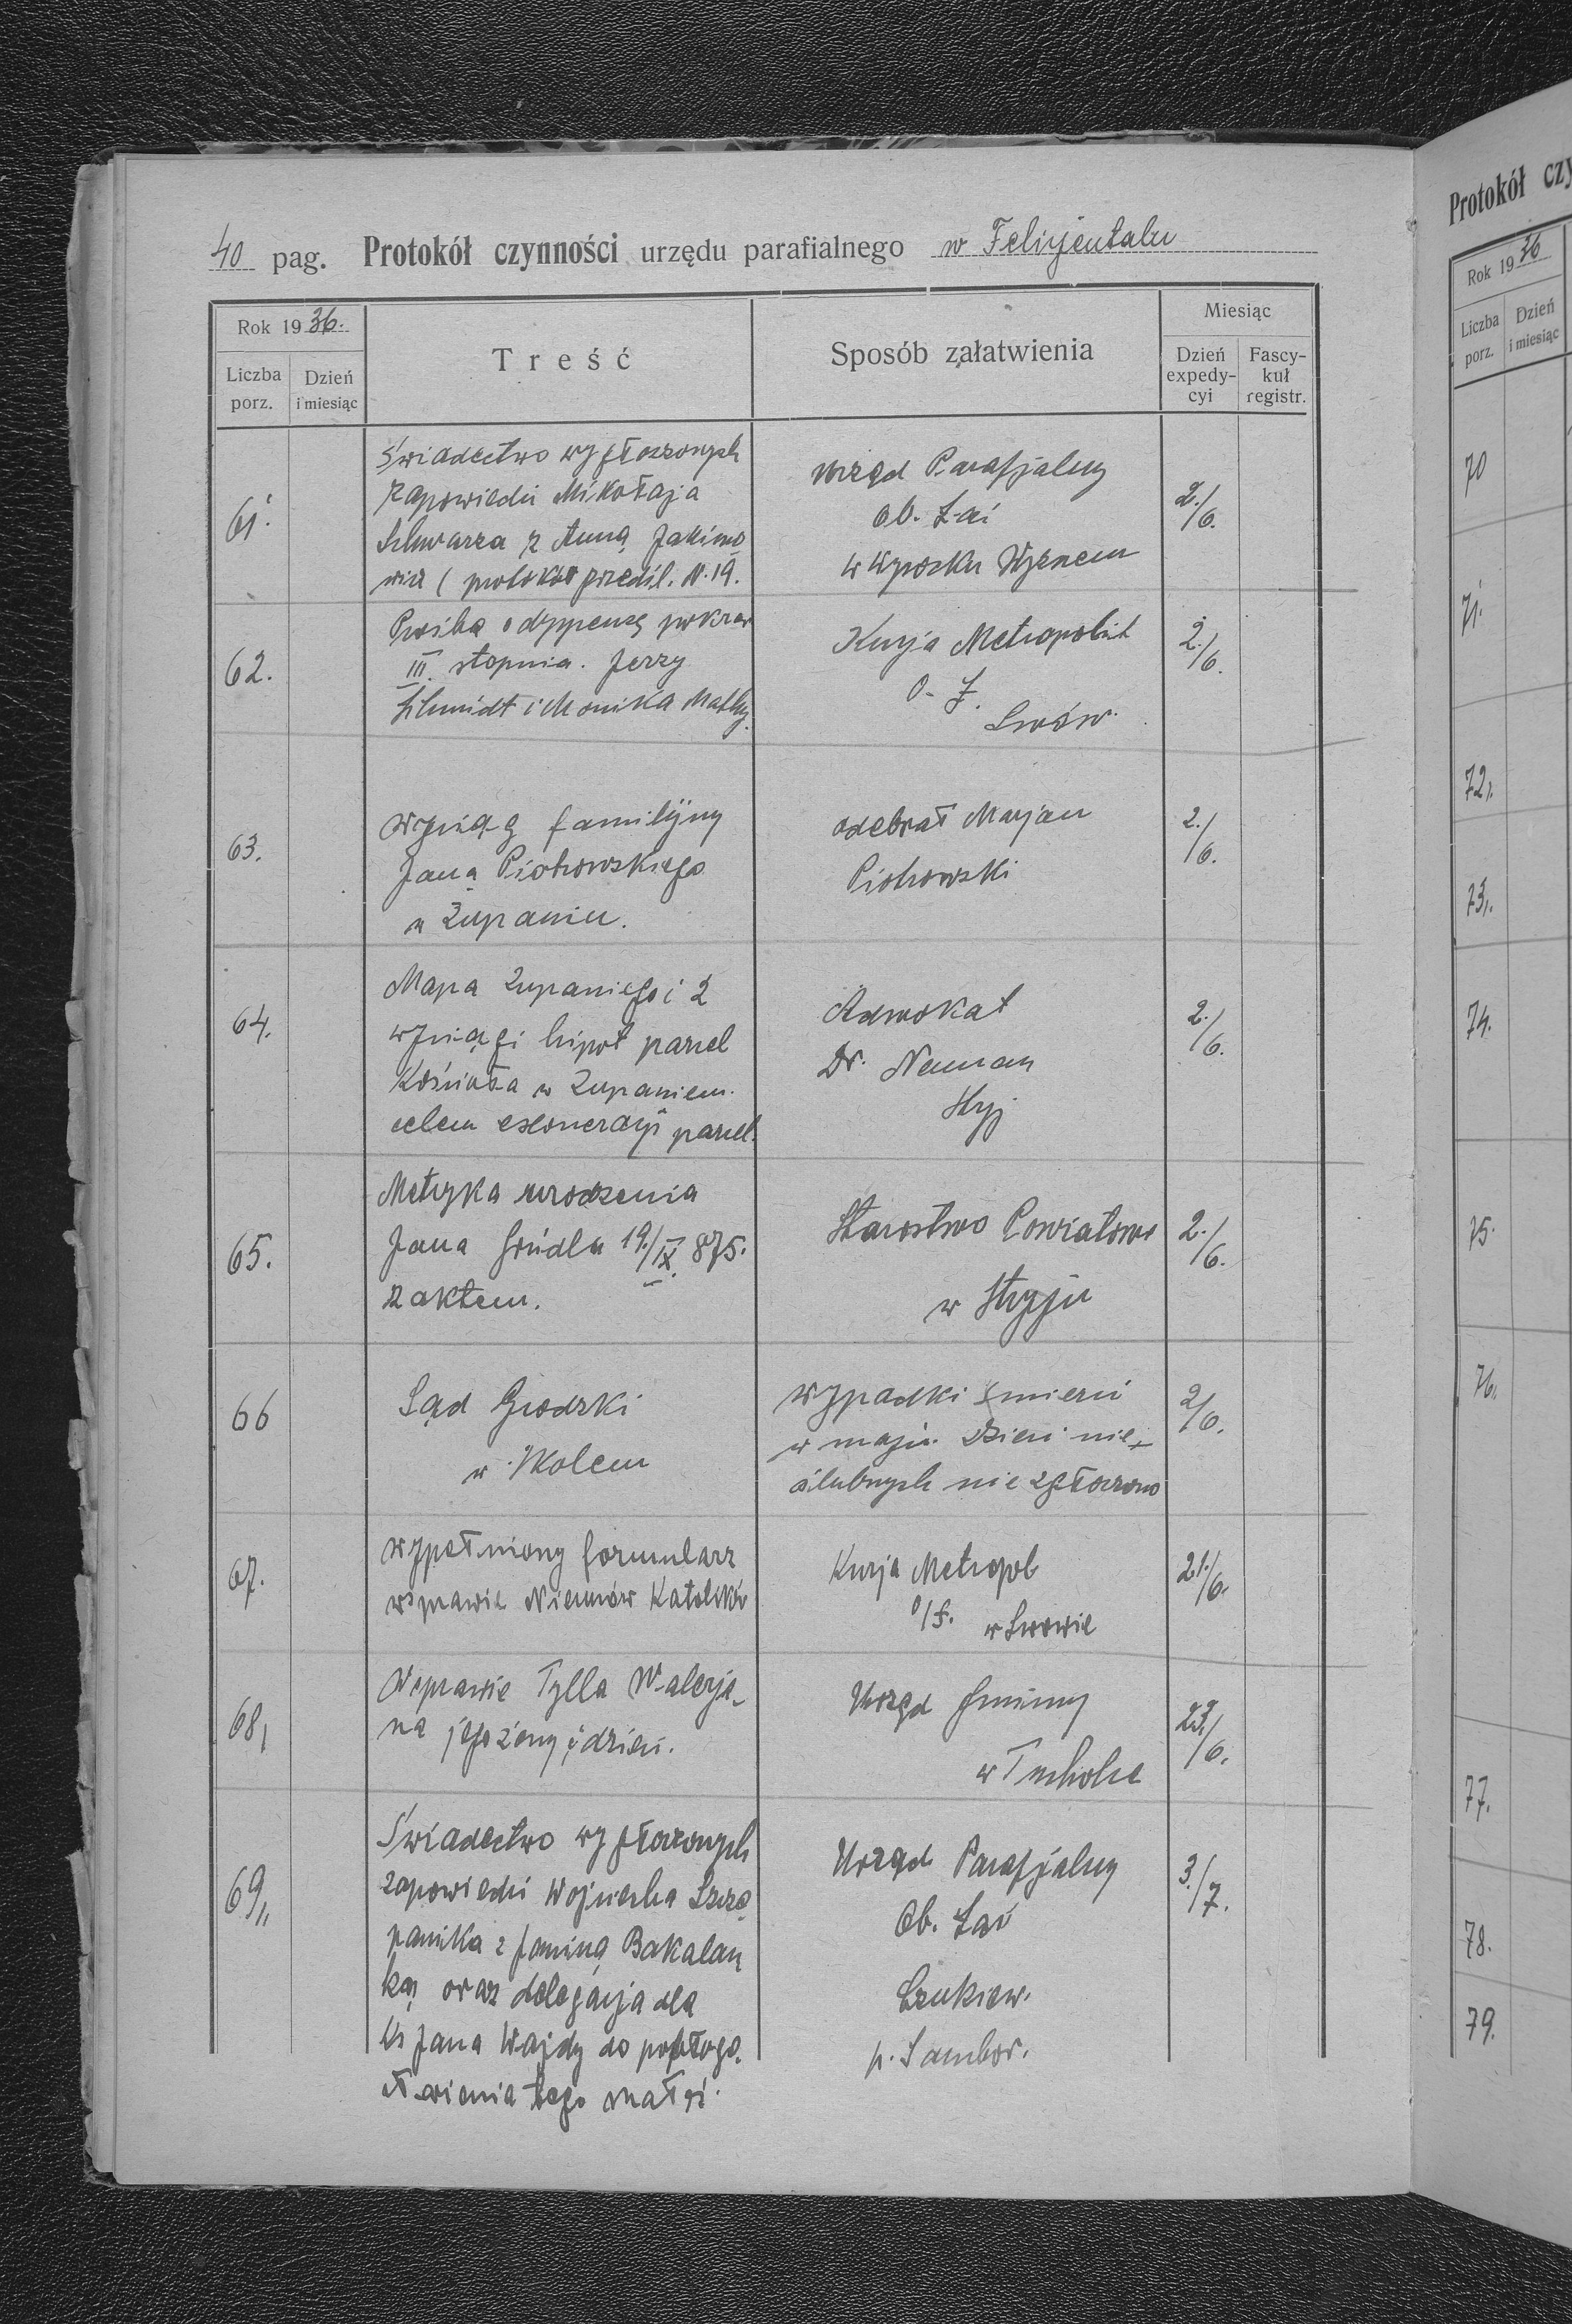 40 pag. Protokół czynności urzędu parafialnego w Felicjentalu
Rok 1936.
Liczba porz.
Dzień i miesiąc
Treść
Sposób załatwienia
Miesiąc
Dzień expedycyi
Fascykuł registr.
61.
Świadectwo wygłoszonych
zapowiedzi Mikołaja
Schwarza z Anną Jakimo
wicz ( protokół przedśl. N. 19.
Urząd Parafjalny
ob. Łać
w Wyższem
2./6.
62.
Prośba o dyspenzę pokrew
III. stopnia. Jerzy
Schmidt i Monika Mathy.
Kurja Metropolit
o. Ł.
Lwów.
2./6.
63.
Wyciąg familijny
Jana Piotrowskiego
z Żupaniu.
odebrał Marjan
Piotrowski
2./6.
64.
Mapa Żupaniego i 2
wyciągi hipot parcel
Kościoła w Żupaniem.
celem exoneracji parcel.
Adwokat
Dr. Neuman
Stryj
2./6.
65.
Metryka urodzenia
Jana 19./IX. 875.
z aktem.
Starostwo Powiatowe
w Stryju
2./6.
66
Sąd Grodzki
w Skolem
wypadki śmierci
w maju. Dzieci nie-
ślubnych nie zgłoszono
2/6.
67.
wypełniony formularz
w sprawie Niemców Katolików
Kurja Metropol
o/ł. w Lwowie
21./6.
68,
W sprawie Tylla Walerja-
na jego żony i dzieci.
Urząd Gminny
w Tucholce
23./6.
69,,
Świadectwo wygłoszonych
zapowiedzi Wojciecha Szcze
panika z Janiną Bakalan
ką oraz delegacja dla
Ks Jana Wajdy do pobłogo.
sławienia tego małż.
Urząd Parafjalny
Ob. Łać
p. Sambor.
3./7.
Protokół czy
Rok 1936
Liczba porz.
Dzień i miesiąc
70
71.
72,.
73,.
74.
75.
76.
77.
78.
79.